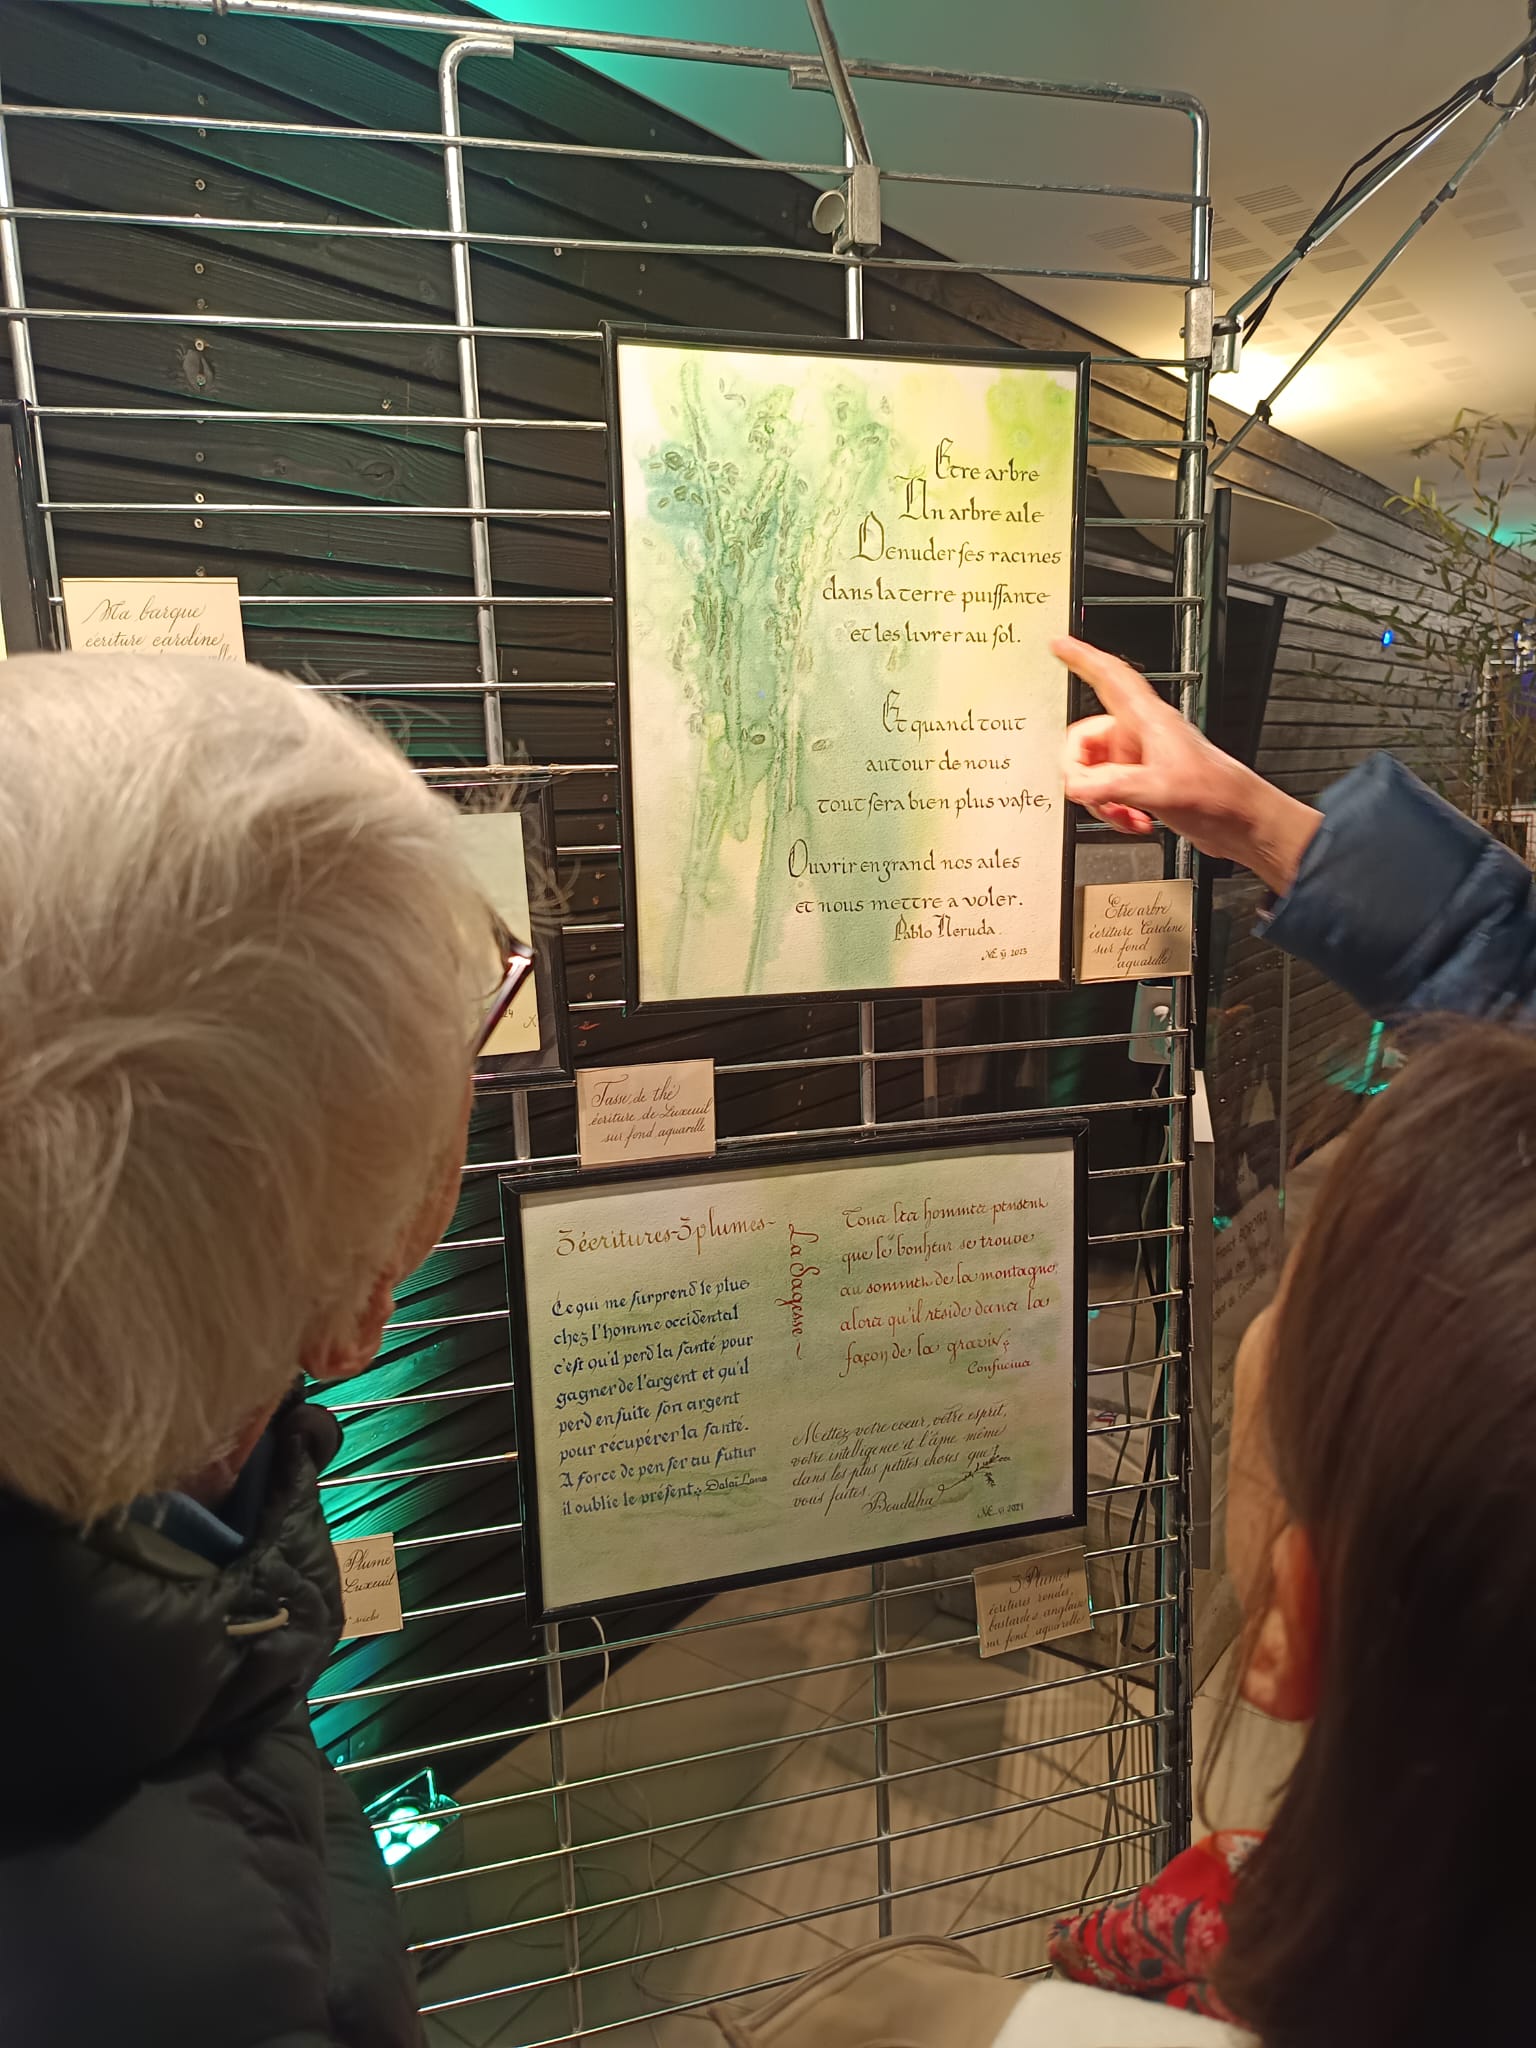 Ma barque
écriture caroline
Etre arbre
Un arbre aile
Denuder ses racines
dans la terre puissante
et les livrer au sol.
Et quand tout
autour de nous
tout sera bien plus vaste,
Ouvrir en grand nos ailes
et nous mettre a voler.
Pablo Neruda.
NE 2023
Etre arbre
écriture Caroline
sur fond
aquarelle
24
Tasse de thé
écriture de Luxeuil
sur fond aquarelle
3 écritures-3 plumes-
La Sagesse ~
Ce qui me surprend le plus
chez l'homme occidental
c'est qu'il perd la santé pour
gagner de l'argent et qu'il
perd ensuite son argent
pour récupérer la santé.
A force de penser au futur
il oublie le présent. Dalaï Lama
Tous les hommes pensent
que le bonheur se trouve
au sommet de la montagne
alors qu'il réside dans la
façon de la gravir.
Confucius
Mettez votre coeur, votre esprit,
votre intelligence et l'âme même
dans les plus petites choses que
vous faites.
Bouddha
NE 2021
Plume
Luxeuil
siècle
3 Plumes
écritures rondes,
bastardes, anglaise
sur fond aquarelle